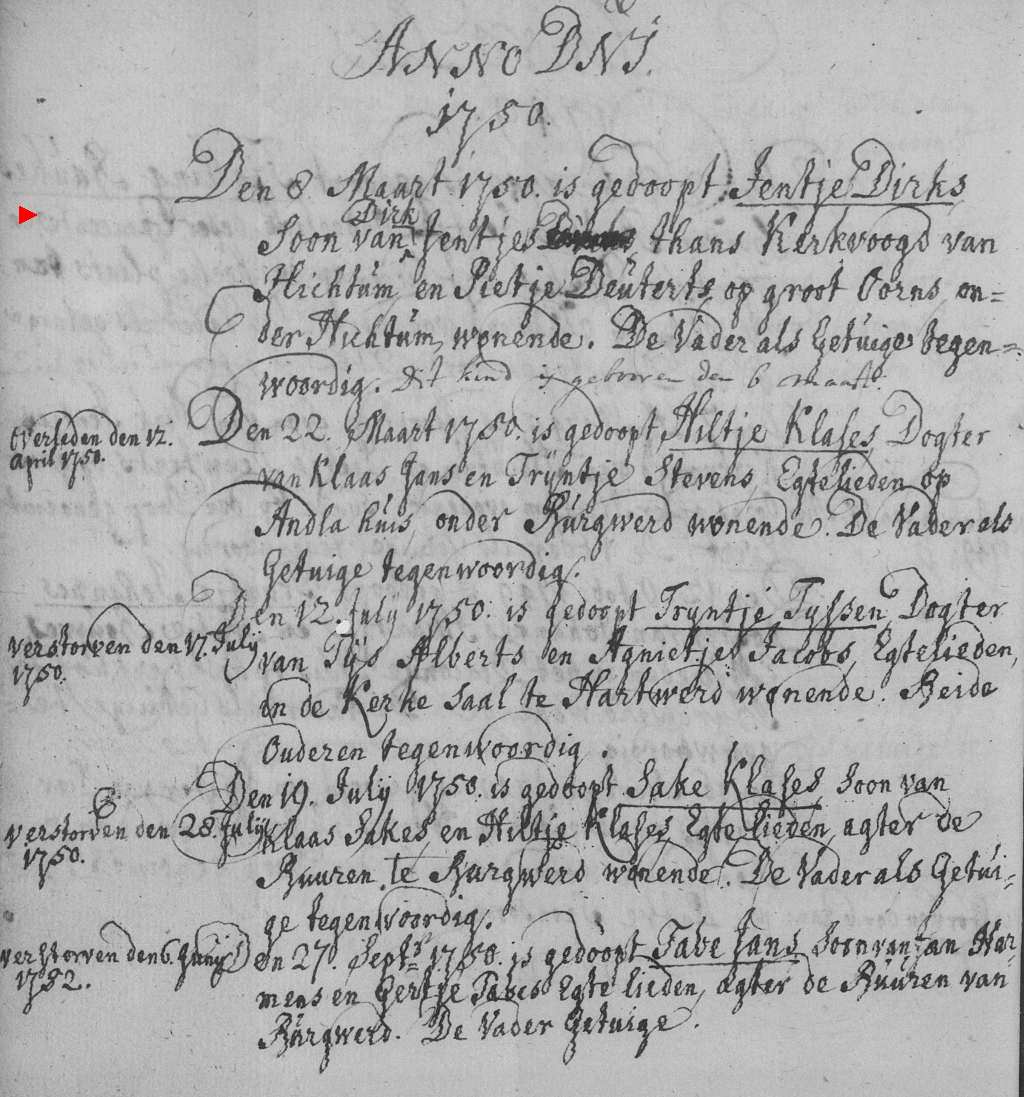 ANNO DNI.
1750.
Den 8. Maart 1750. is gedoopt Jentje Dirks,
Dirk
Soon van ^ Jentjes, thans Kerkvoogd van
Hichtum, en Pietje Deuterts, op groot Oorns, on=
der Hichtum, wonende. De Vader als Getuige tegen=
woordig. Dit kind is gebooren den 6 maart.
Overleden den 12.
April 1750.
Den 22. Maart 1750. is gedoopt Hiltje Klases, Dogter
van Klaas Jans en Trijntje Stevens, Egtelieden op
Andla huis, onder Burgwerd wonende. De Vader als
Getuige tegenwoordig.
Den 12. July 1750. is gedoopt Tryntje Tyssen, Dogter
verstorven den 17. July
1750.
van Tijs Alberts en Agnietje Jacobs, Egtelieden,
in de Kerke saal te Hartwerd wonende. Beide
Ouderen tegenwoordig.
Den 19. July 1750. is gedoopt Sake Klases Soon van
verstorven den 28. July
1750.
Klaas Sakes, en Hiltje Klases, Egtelieden, agter de
Buuren te Burgwerd wonende. De Vader als Getui=
ge tegenwoordig.
verstorven den 6. Junij
1752.
Den 27. Septr. 1750. is gedoopt Tabe Jans Soon van Jan Har=
mens en Gertje Tabes Egtelieden, agter de Buuren van
Burgwerd. De Vader Getuige.